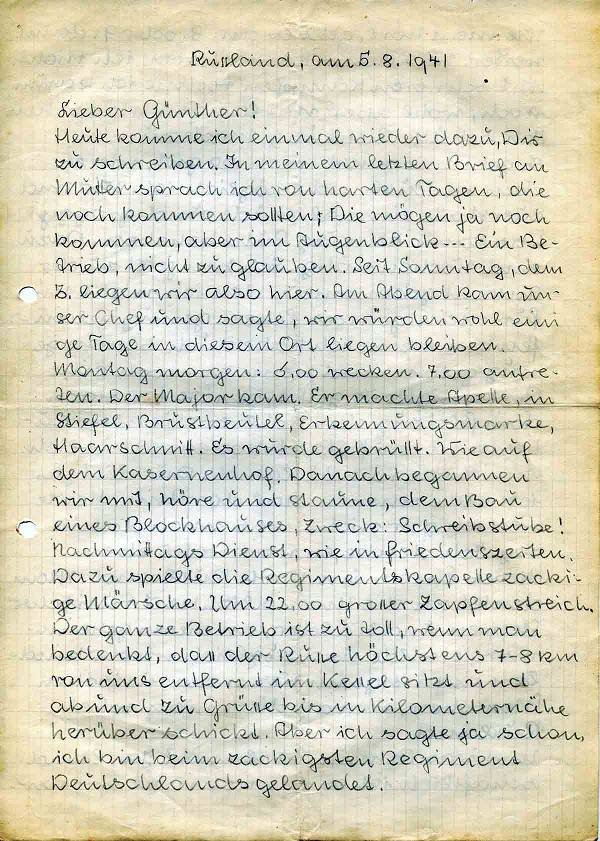 Rußland, am 5.8.1941
Lieber Günther!
Heute komme ich einmal wieder dazu, Dir
zu schreiben. In meinem letzten Brief an
Mutter sprach ich von harten Tagen, die
noch kommen sollten; Die mögen ja noch
kommen, aber im Augenblick --- Ein Be-
trieb, nicht zu glauben. Seit Sonntag, dem
3. liegen wir also hier. Am Abend kam un-
ser Chef und sagte, wir würden wohl eini
ge Tage in diesem Ort liegen bleiben.
Montag morgen: 6,00 wecken. 7,00 antre-
ten. Der Major kam. Er machte Apelle, in
Stiefel, Brustbeutel, Erkennungsmarke,
Haarschnitt. Es wurde gebrüllt. Wie auf
dem Kasernenhof. Danach begannen
wir mit, höre und staune, dem Bau
eines Blockhauses, Zweck: Schreibstube!
Nachmittags Dienst, wie in Friedenszeiten.
Dazu spielte die Regimentskapelle zacki-
ge Märsche. Um 22,00 großer Zapfenstreich.
Der ganze Betrieb ist zu toll, wenn man
bedenkt, daß der Russe höchstens 7-8 km
von uns entfernt im Kessel sitzt und
ab und zu Grüße bis in Kilometernähe
herüber schickt. Aber ich sagte ja schon,
ich bin beim zackigsten Regiment
Deutschlands gelandet.